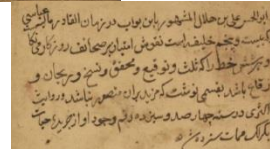 ابو الحسن علی بن هلال المشهور بابن بواب در زمان القادر بالله عباسی
که بیست و پنجم خلیفه است نقوش امتیاز بر صحائف روزگار
و هر شش خط را که ثلث و توقیع و محقق و نسخ و ریحان و
رقاع باشد بقسمی نوشت که مزید بران متصور نباشد و
در سنه چهارصد و سیزده رقم وجود او از جریده حیات